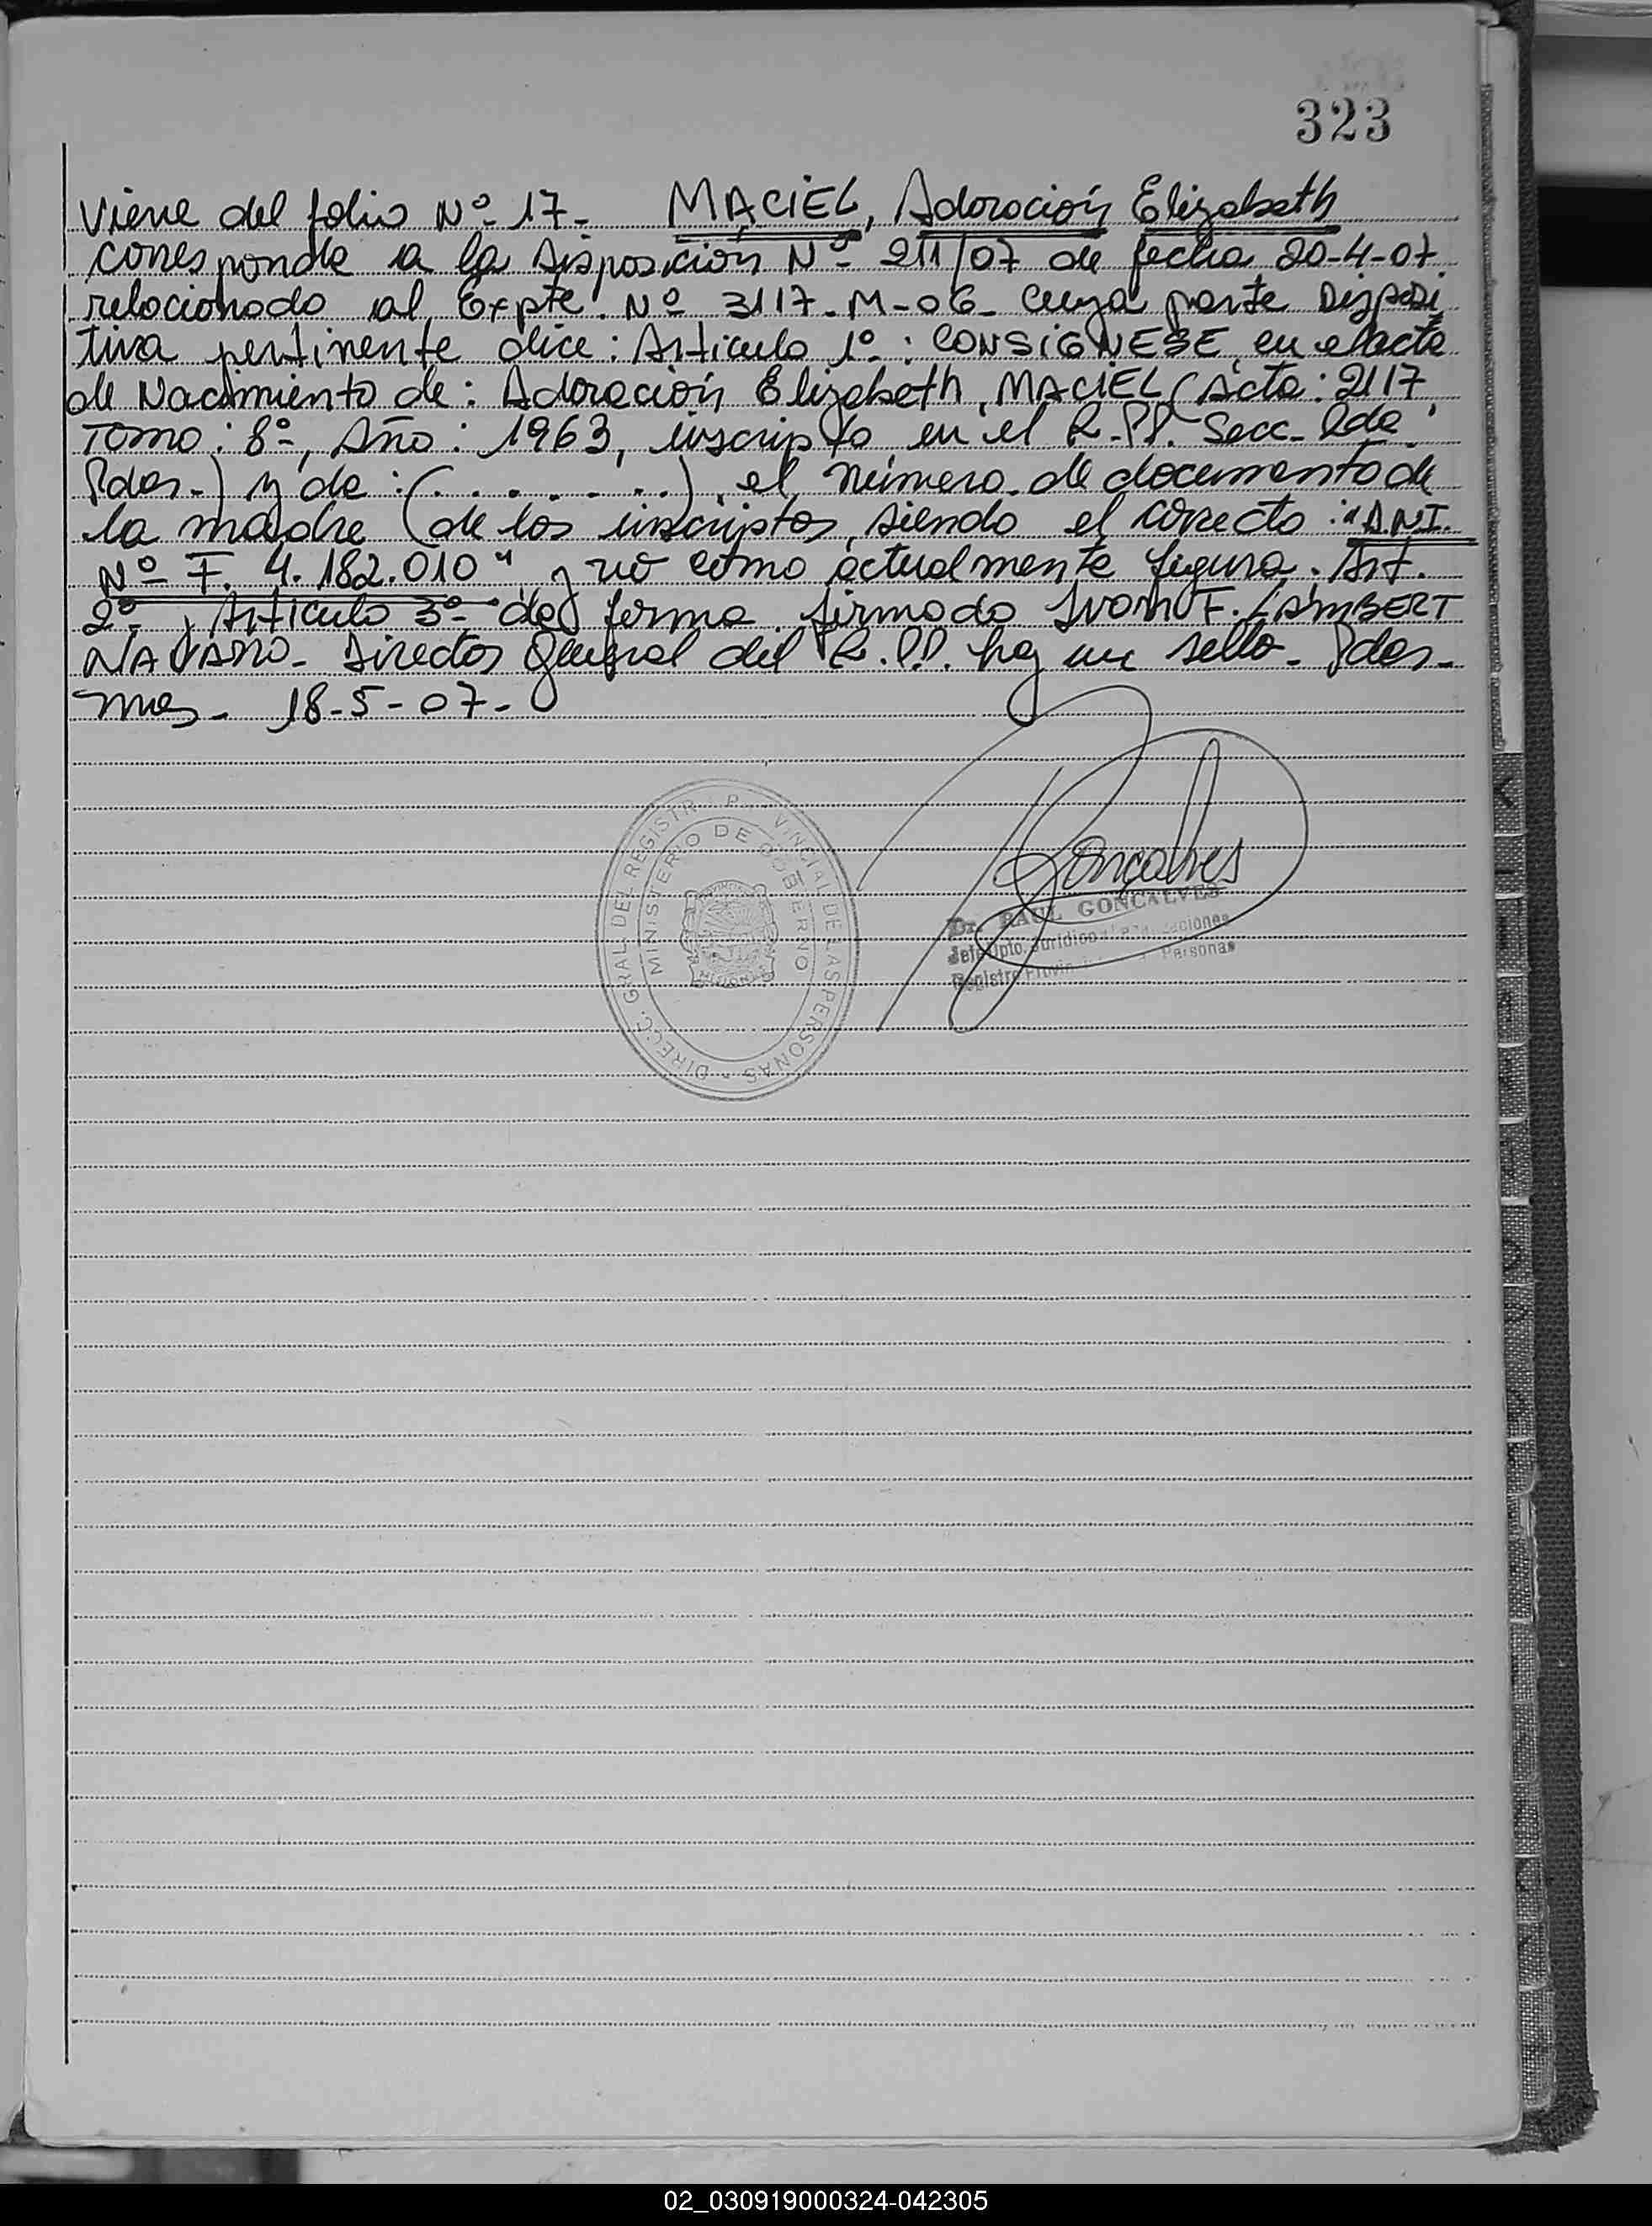 323
Viene del folio Nº 17- MACIEL, Adoración Elizabeth
corresponde a la Disposición Nº 211/07 de fecha 20-4-07.
relacionado al Expte. Nº 3117-M-06- cuya parte Disposi
tiva pertinente dice: Artículo 1º: CONSIGNESE en el acta
de Nacimiento de: Adoración Elizabeth, MACIEL (Acta: 2117
Tomo: 8º, Año: 1963, inscripta en el R.PP. Secc. 2da.
Pdas.) y de: (. . . . . . .), el número de documento de
la madre (de los inscriptos, siendo el correcto: "D.N.I.
Nº F. 4.182.010" y no como actualmente figura. Art.
2º, Artículo 3º de forma. firmado F. LAMBERT
Director General del R.PP. hay un sello- Pdas-
mes- 18-5-07-
Gonçalves
Dr. RAUL GONCALVES
Jefe Dpto. Jurídico
Registro Provin Personas
DIRECC. GRAL. DEL REGISTR P VINCIAL DE LAS PERSONAS
MINISTERIO DE GOBERNO
02_030919000324-042305